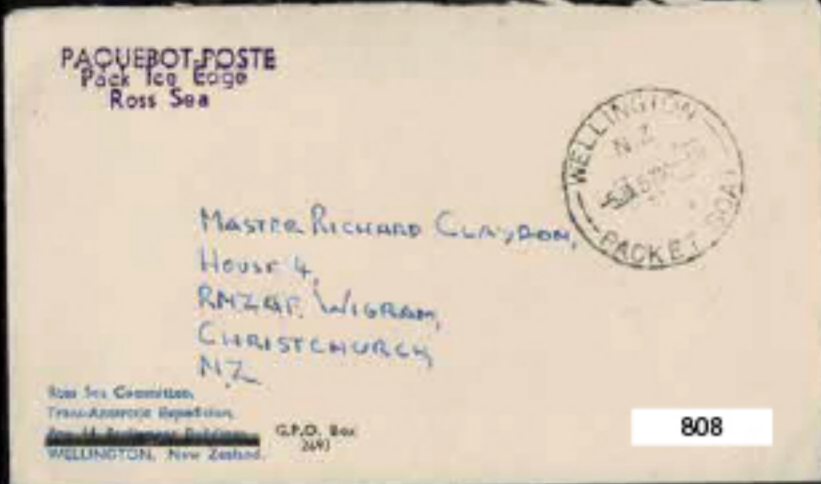 PAQUEBOT-POSTE
Pack Ice Edge
Ross Sea
WELLINGTON
N.Z
PACKET BOAT
MASTER RICHARD CLAYDON,
HOUSE 4,
RNZAF. WIGRAM,
CHRISTCHURCH
N.Z
Ross Sea Committee,
Trans-Antarctic Expedition,
G.P.O. Box
WELLINGTON, New Zealand.
808